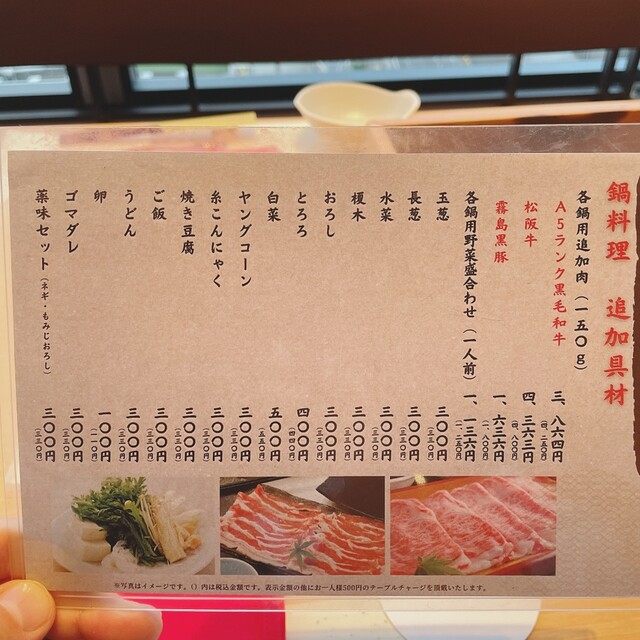 鍋料理 追加具材
各鍋用追加肉(一五〇g)
A5ランク黒毛和牛 三、八六四円(四、二五〇円)
松阪牛 四、三六三円(四、八〇〇円)
霧島黒豚 一、六三六円(一、八〇〇円)
各鍋用野菜盛合わせ(一人前) 一、一三六円(一、二五〇円)
玉葱 三〇〇円(三三〇円)
長葱 三〇〇円(三三〇円)
水菜 三〇〇円(三三〇円)
榎木 三〇〇円(三三〇円)
おろし 三〇〇円(三三〇円)
とろろ 四〇〇円(四四〇円)
白菜 五〇〇円(五五〇円)
ヤングコーン 三〇〇円(三三〇円)
糸こんにゃく 三〇〇円(三三〇円)
焼き豆腐 三〇〇円(三三〇円)
ご飯 三〇〇円(三三〇円)
うどん 三〇〇円(三三〇円)
卵 一〇〇円(一一〇円)
ゴマダレ 三〇〇円(三三〇円)
薬味セット(ネギ・もみじおろし) 三〇〇円(三三〇円)
※写真はイメージです。()内は税込金額です。表示金額の他にお一人様500円のテーブルチャージを頂戴いたします。